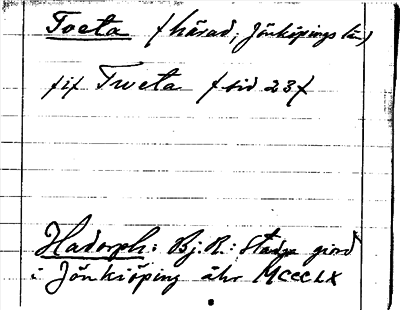 Toeta (härad, Jönköpings län)
/if Tweta (sid 23)
Hadorph: Bj. R.: Stadga giord
i Jönkiöping åhr MCCCLX